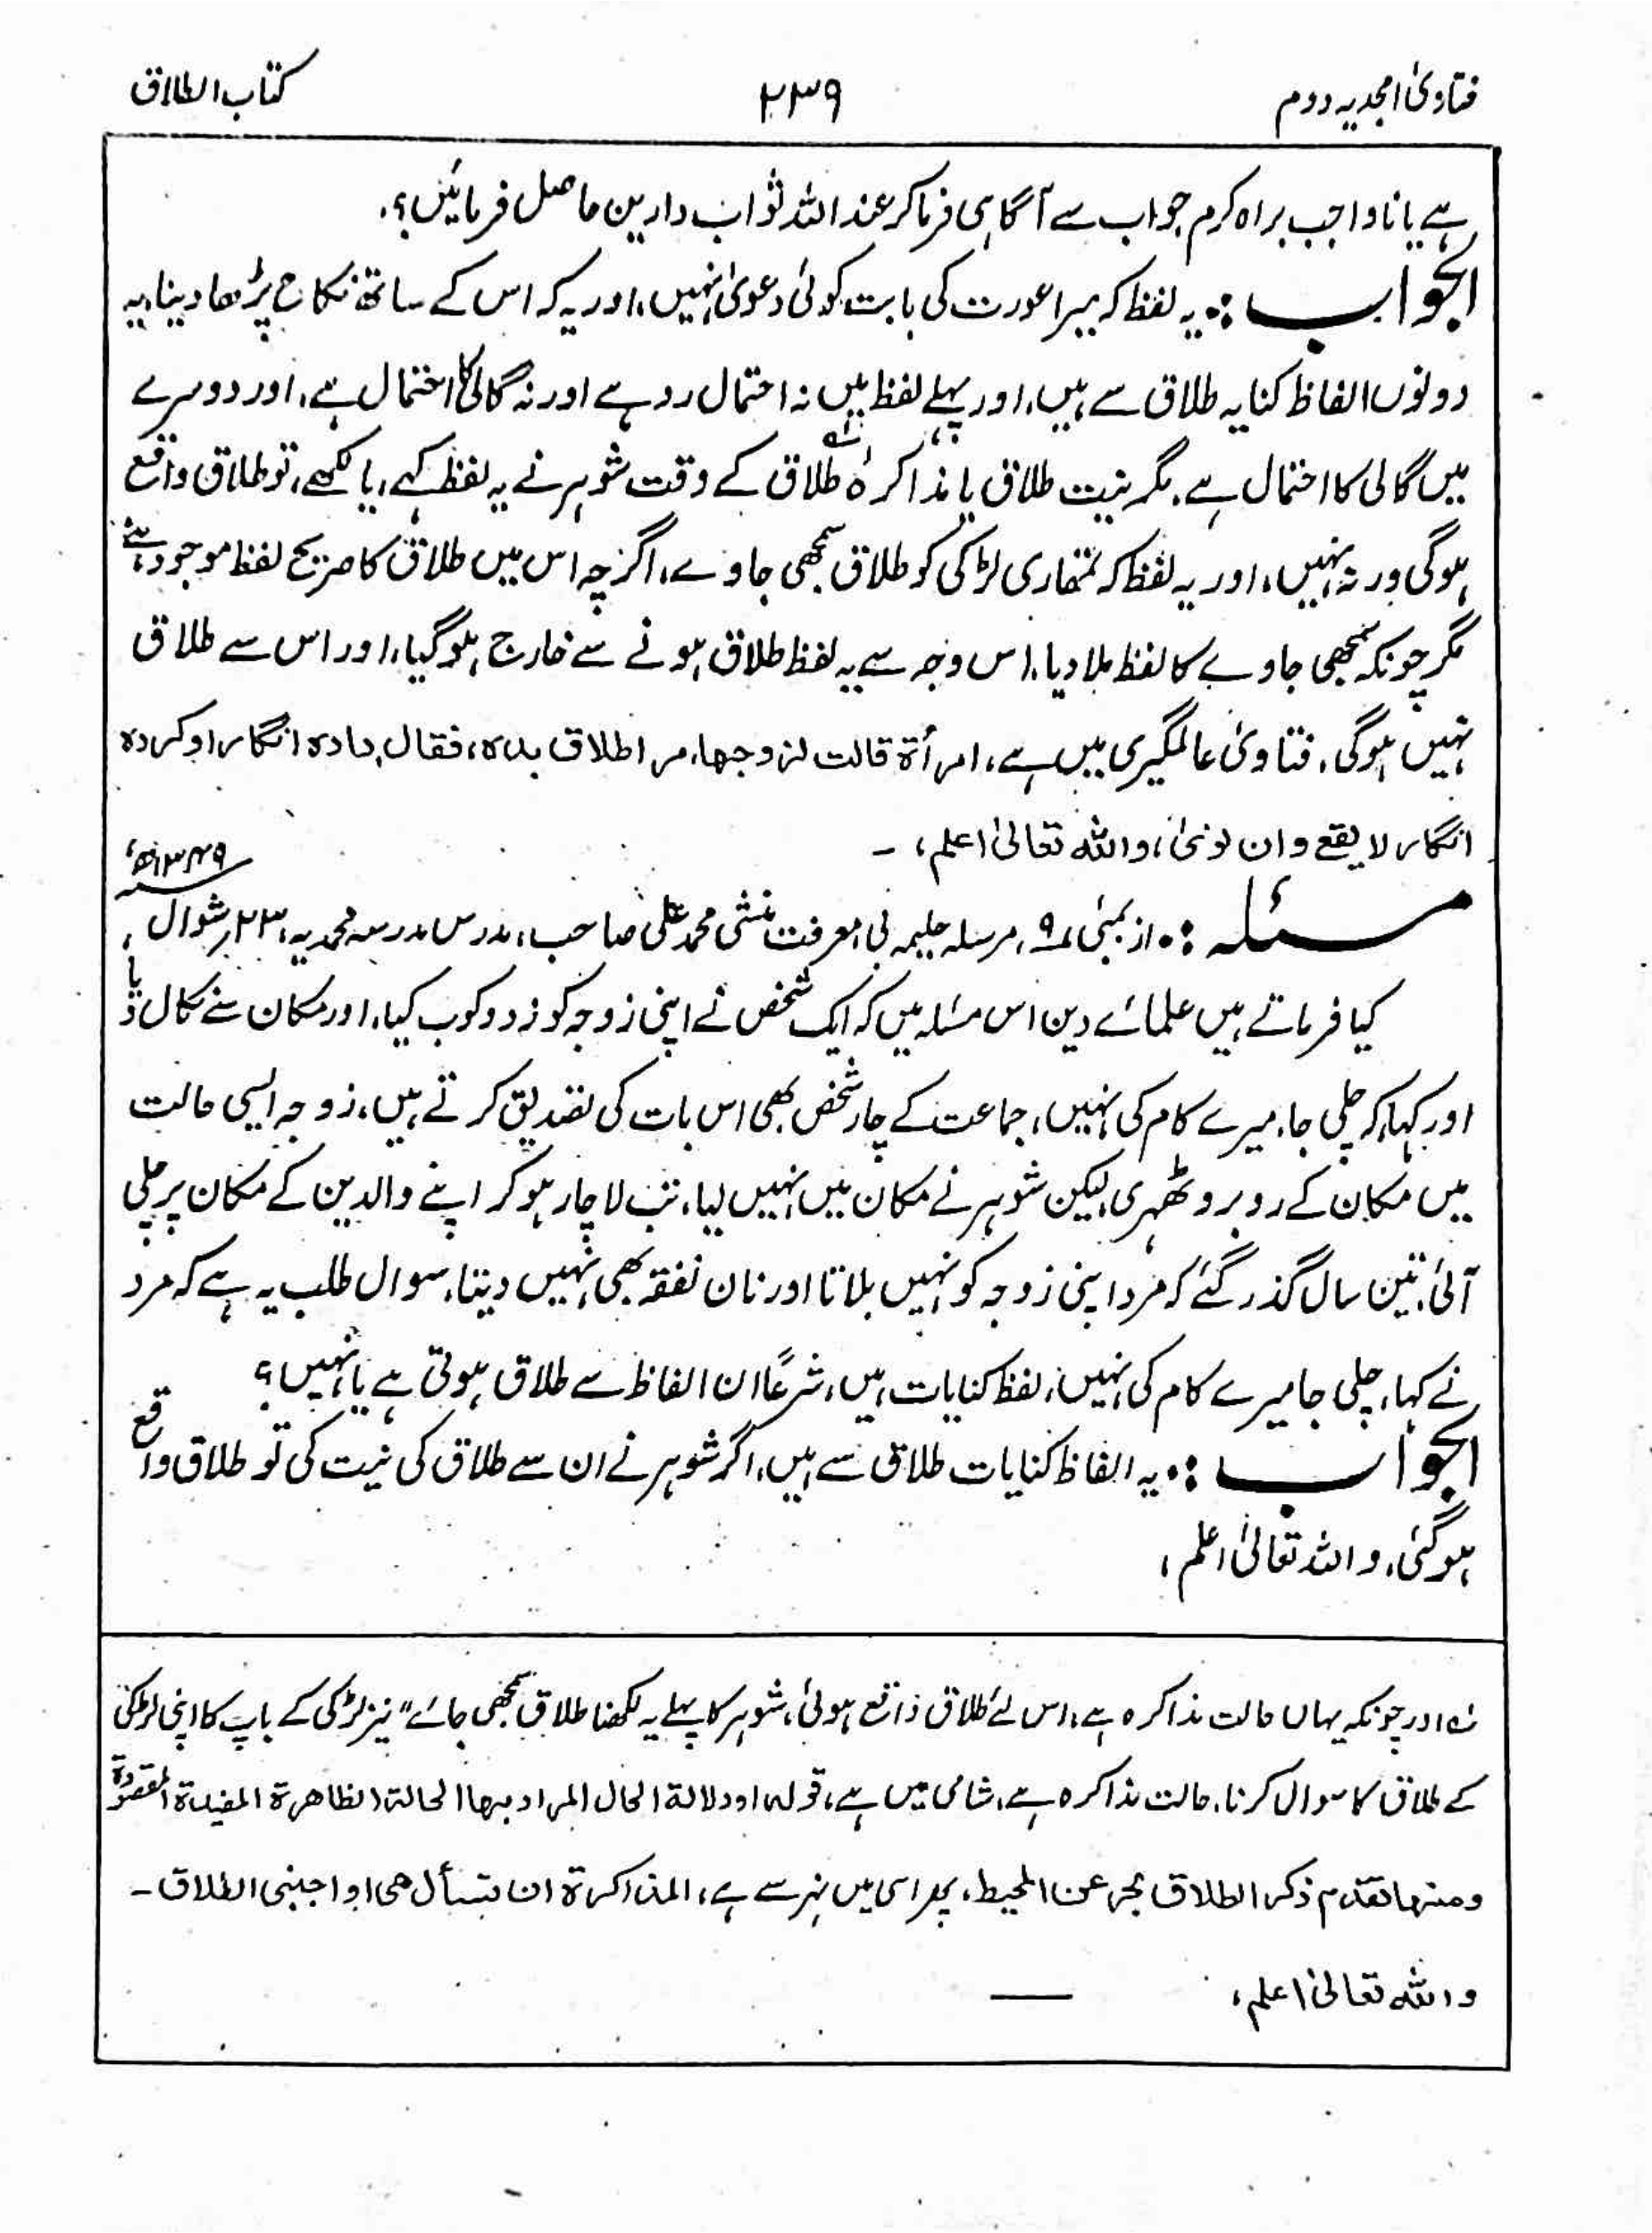 فتاویٰ امجدیہ دوم ۲۳۹ کتاب الطلاق
ہے یا ناواجب براہ کرم جواب سے آگاہی فرما کر عند اللہ ثواب دارین حاصل فرمائیں؟.
الجواب :۔ یہ لفظ کہ میرا عورت کی بابت کوئی دعویٰ نہیں، اور یہ کہ اس کے ساتھ نکاح پڑھا دینا، یہ
دونوں الفاظ کنایہ طلاق سے ہیں، اور پہلے لفظ میں نہ احتمال رد ہے اور نہ گالی کا احتمال ہے، اور دوسرے
میں گالی کا احتمال ہے، مگر بنیت طلاق یا مذاکرۂ طلاق کے وقت شوہر نے یہ لفظ کہے، یا لکھے، تو طلاق واقع
ہوگی ورنہ نہیں، اور یہ لفظ کہ تمھاری لڑکی کو طلاق سمجھی جاوے، اگرچہ اس میں طلاق کا صریح لفظ موجود ہے
مگر چونکہ سمجھی جاوے کا لفظ ملا دیا، اس وجہ سے یہ لفظ طلاق ہونے سے خارج ہو گیا، اور اس سے طلاق
نہیں ہوگی، فتاویٰ عالمگیری میں ہے، امرأۃ قالت لزوجہا، مرا طلاق بدہ، فقال دادہ انگار او کردہ
انگار لا یقع وان نویٰ، واللہ تعالیٰ اعلم، ۔
مسئلہ :۔ از بمبئی ۹، مرسلہ حلیمہ بی معرفت منشی محمد علی صاحب، مدرس مدرسہ محمدیہ، ۲۳؍شوال ۱۳۴۹ھ،
کیا فرماتے ہیں علمائے دین اس مسئلہ میں کہ ایک شخص نے اپنی زوجہ کو زدوکوب کیا، اور مکان سے نکال دیا
اور کہا کہ چلی جا، میرے کام کی نہیں، جماعت کے چار شخص بھی اس بات کی تصدیق کرتے ہیں، زوجہ ایسی حالت
میں مکان کے روبرو ٹھہری، لیکن شوہر نے مکان میں نہیں لیا، تب لاچار ہو کر اپنے والدین کے مکان پر چلی
آئی، تین سال گذر گئے کہ مرد اپنی زوجہ کو نہیں بلاتا اور نان نفقہ بھی نہیں دیتا، سوال طلب یہ ہے کہ مرد
نے کہا، چلی جا میرے کام کی نہیں، لفظ کنایات ہیں، شرعًا ان الفاظ سے طلاق ہوتی ہے یا نہیں؟
الجواب :۔ یہ الفاظ کنایات طلاق سے ہیں، اگر شوہر نے ان سے طلاق کی نیت کی تو طلاق واقع
ہوگئی، واللہ تعالیٰ اعلم،
اور چونکہ یہاں حالت مذاکرہ ہے، اس لئے طلاق واقع ہوئی، شوہر کا پہلے یہ لکھنا طلاق سمجھی جائے" نیز لڑکی کے باپ کا اپنی لڑکی
کے طلاق کا سوال کرنا، حالت مذاکرہ ہے، شامی میں ہے، قولہ او دلالۃ الحال المراد بہا الحالۃ الظاهرۃ المفیدۃ لمقصودۃ
ومنہا تقدم ذکر الطلاق بحر عن المحیط، پھر اسی میں نہر سے ہے، المذاکرۃ ان تسأل ھی او اجنبی الطلاق۔
واللہ تعالیٰ اعلم،